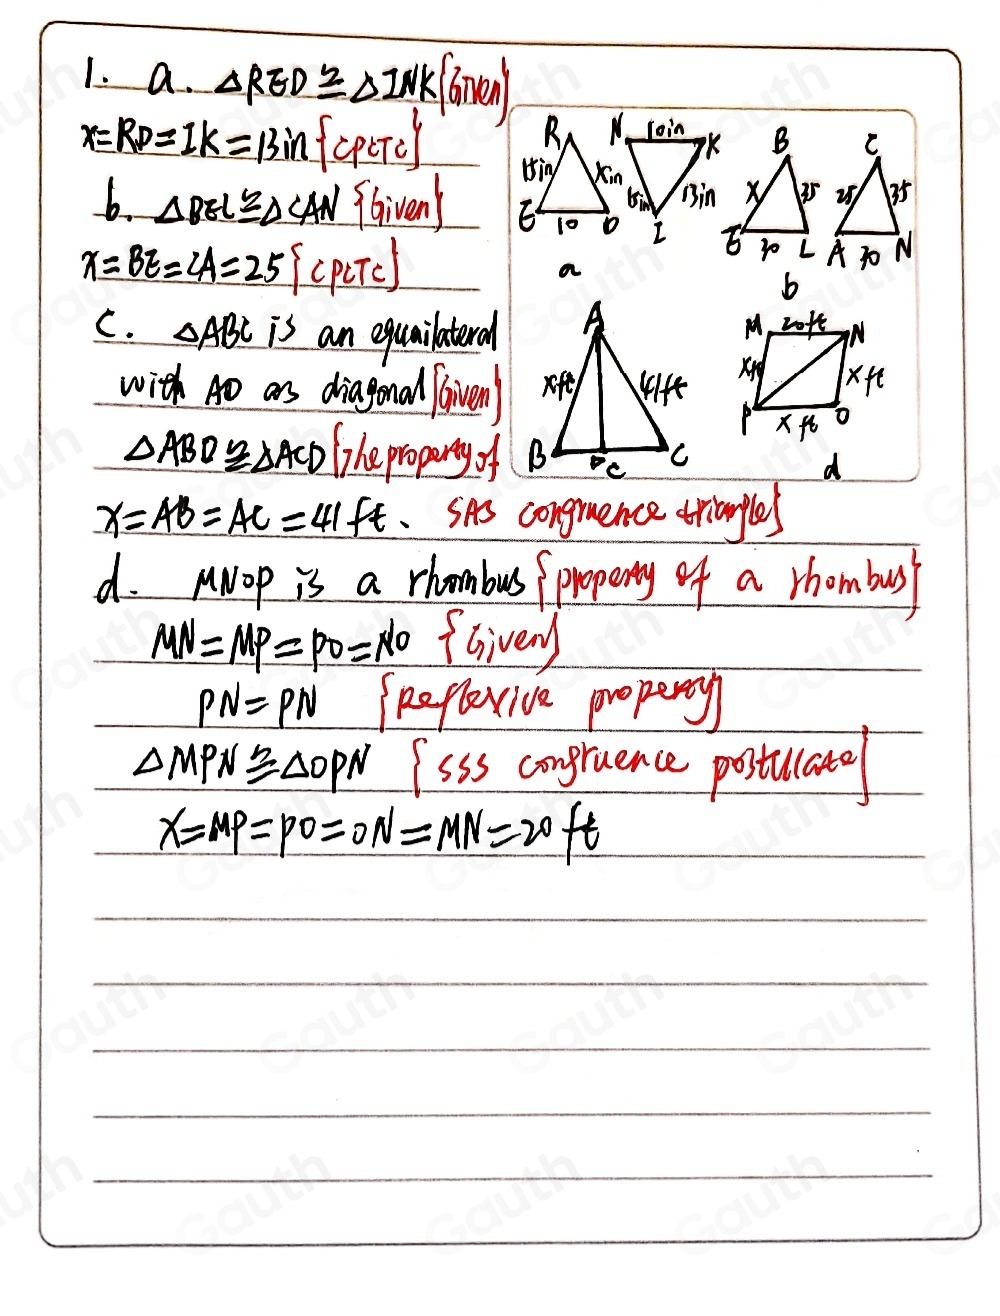 1. a. △RED ≅ △INK {Given}
x=RD=IK=13in {CPCTC}
b. △BEL≅△CAN {Given}
x=BE=CA=25 {CPCTC}
c. △ABC is an equailateral
with AD as diagonal {Given}
△ABD≅△ACD {The property of
x=AB=AC=41ft. SAS congruence triangle}
d. MNOP is a rhombus {property of a rhombus}
MN=MP=PO=NO {Given}
PN=PN {Reflexive property}
△MPN≅△OPN {SSS congruence postulate}
x=MP=PO=ON=MN=20ft
R N 10in K
15in xin 15in 13in
E 10 D I
a
B C
x 35 25 35
E 30 L A 30 N
b
A
xft 41ft
B D C C
M 20ft N
xft xft
P xft O
d
Gauth